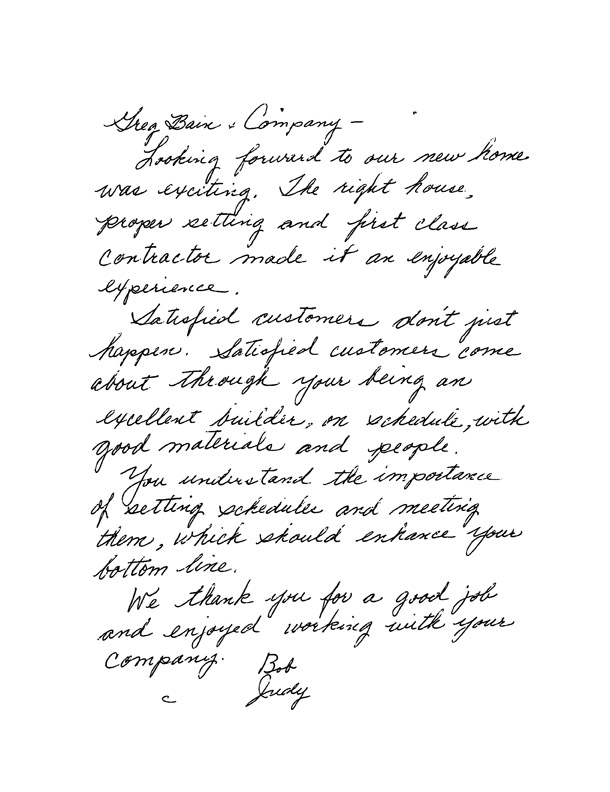 Greg Bain & Company -
Looking forward to our new home
was exciting. The right house,
proper setting and first class
contractor made it an enjoyable
experience.
Satisfied customers don't just
happen. Satisfied customers come
about through your being an
excellent builder, on schedule, with
good materials and people.
You understand the importance
of setting schedules and meeting
them, which should enhance your
bottom line.
We thank you for a good job
and enjoyed working with your
company.
Bob
Judy
c